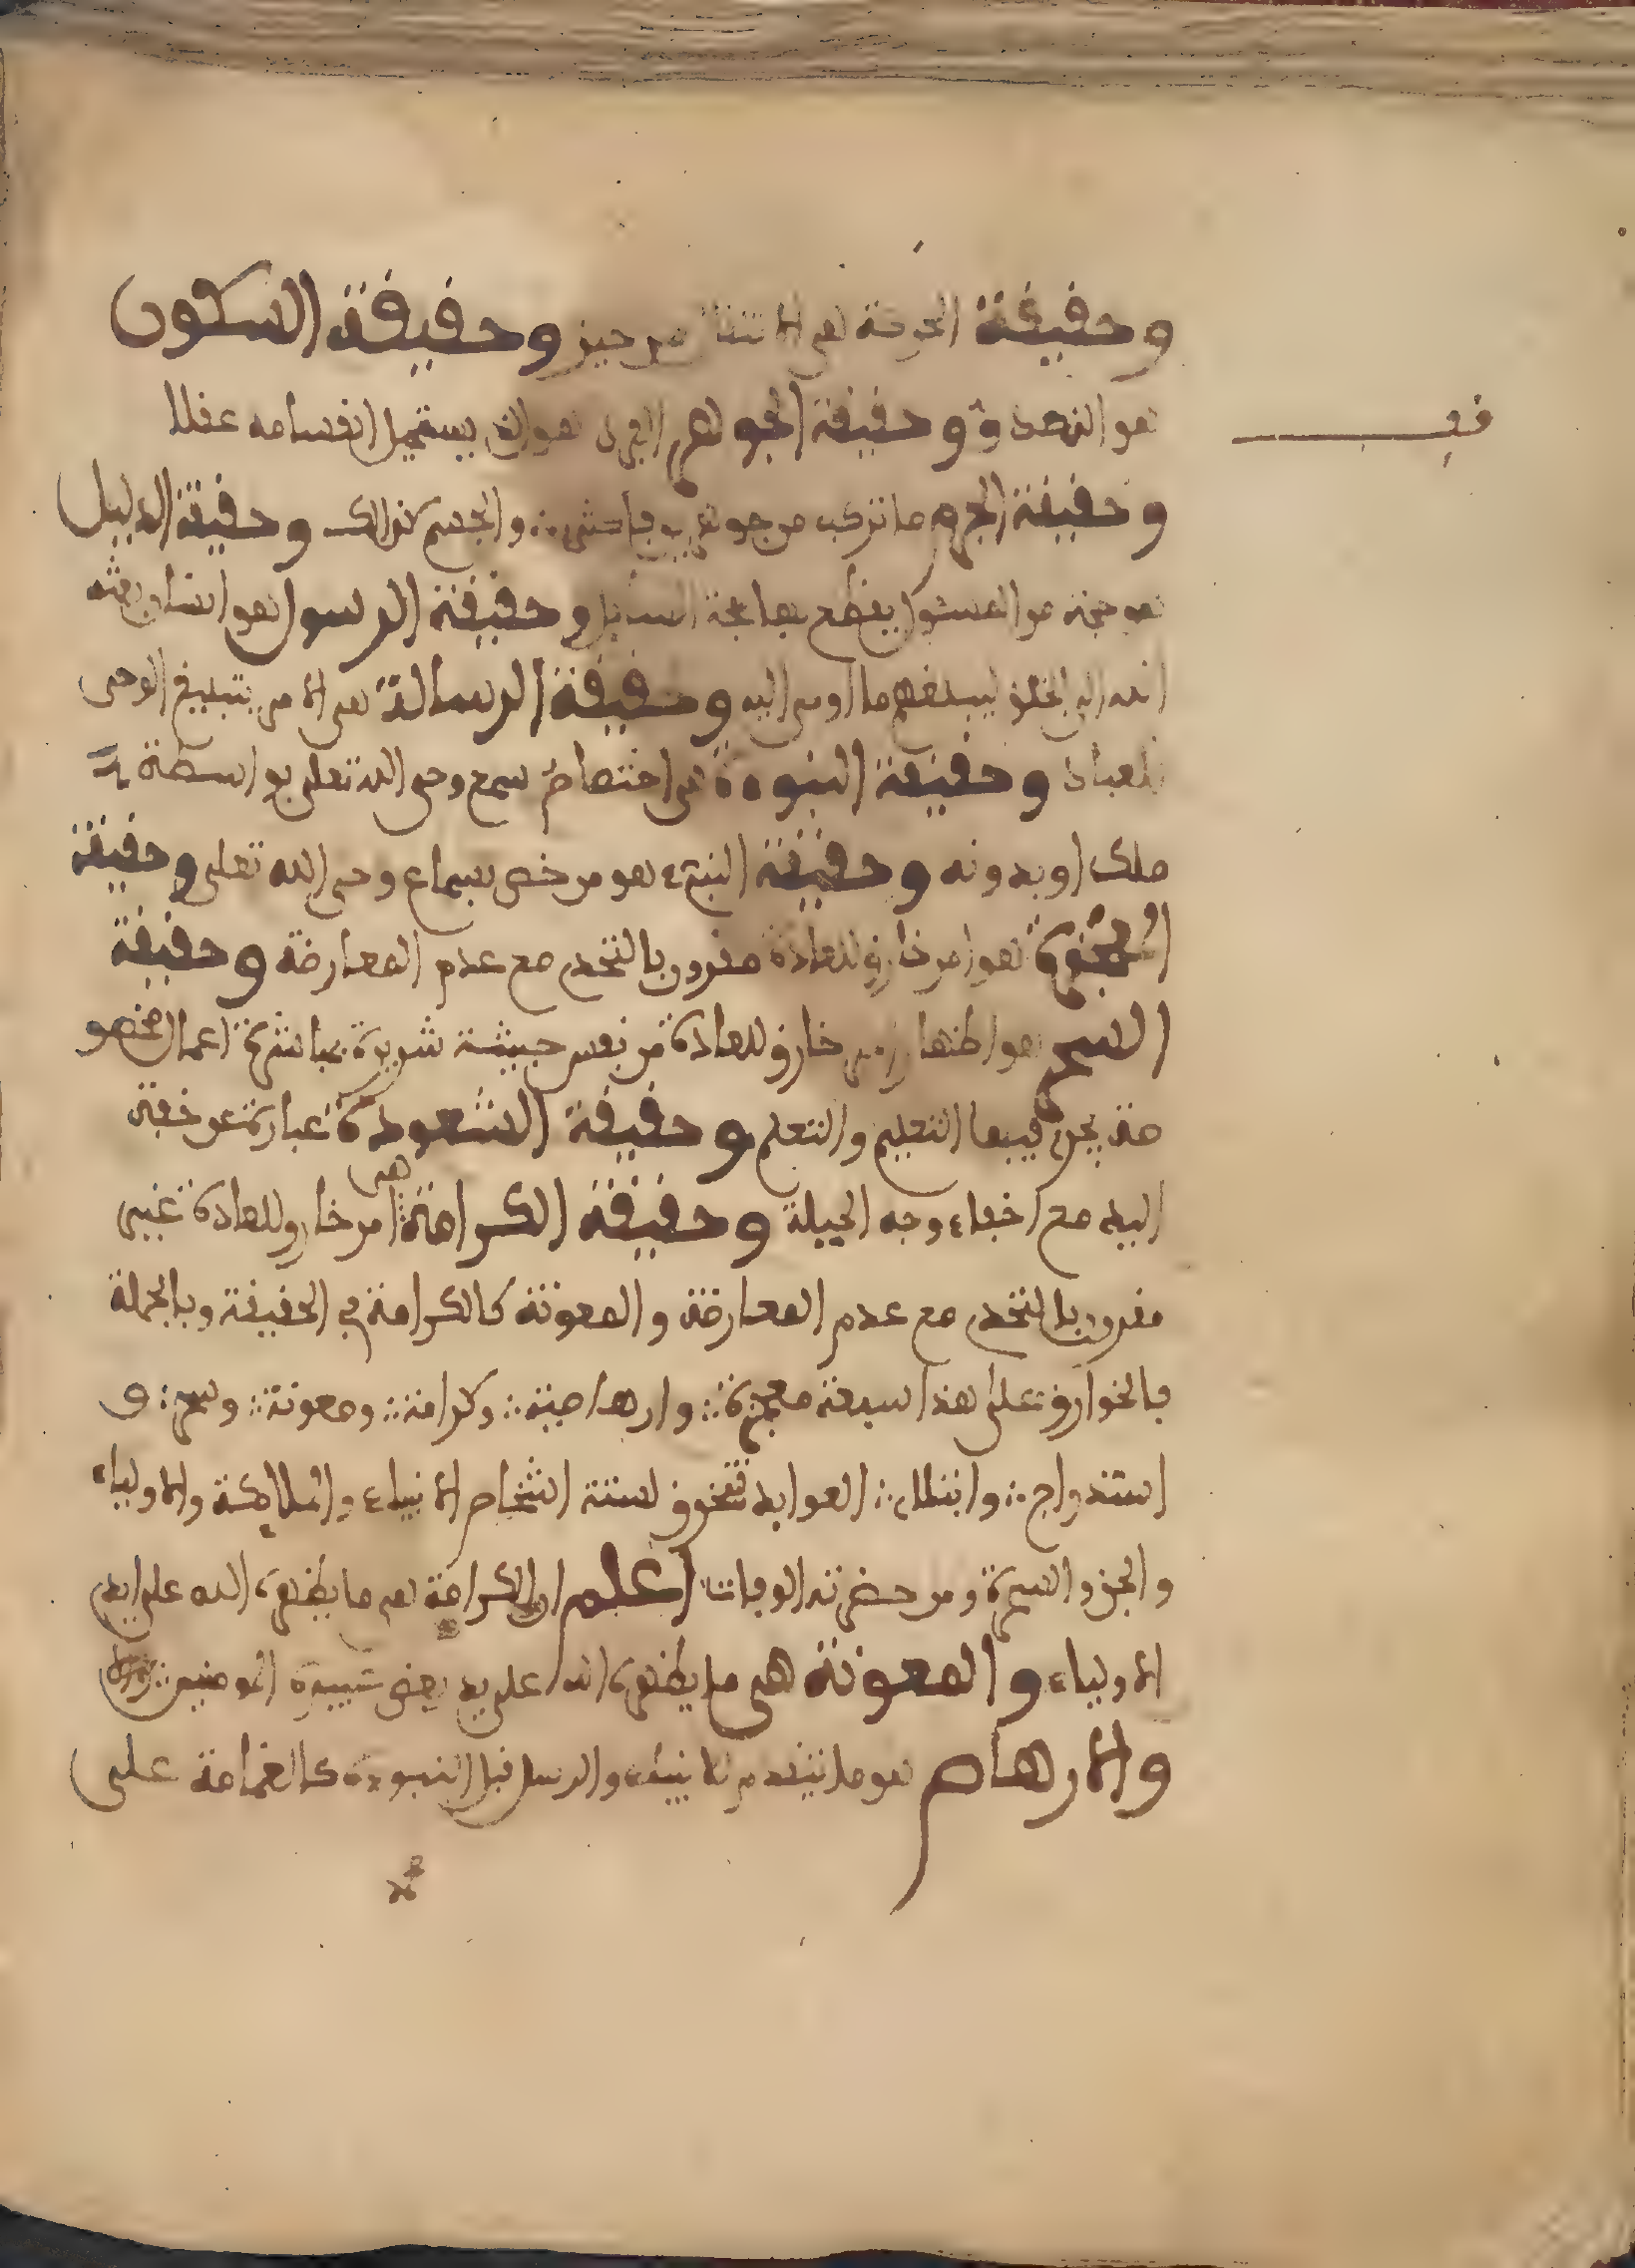 وحقيقة الحركة هي الانتقال من حيز وحقيقة السكون
هو الضد وحقيقة الجوهر الفرد هو الذي يستحيل انقسامه عقلا
وحقيقة الجرم ما تركب من جوهرين فاكثر والجسم كذالك وحقيقة الدليل
يقطع بها حجة وحقيقة الرسول هو انسان بعثه
الله الى الخلق ليبلغهم ما اوحي اليه وحقيقة الرسالة هي الامر بتبليغ الوحي
للعباد وحقيقة النبوءة هي اختصاص سمع وحي الله تعلى بواسطة
ملك او بدونه وحقيقة النبيء هو من خص بسماع وحي الله تعلى وحقيقة
المعجزة هو امر خارق للعادة مقرون بالتحدي مع عدم المعارضة وحقيقة
السحر هو اظهار امر خارق للعادة من نفس خبيثة شريرة بمباشرة اعمال مخصو
صة يجري فيها التعليم والتعلم وحقيقة الشعودة عبارة عن خفة
اليد مع اخفاء وجه الحيلة وحقيقة الكرامة هي امر خارق للعادة غير
مقرون بالتحدي مع عدم المعارضة والمعونة كالكرامة في الحقيقة وبالجملة
فالخوارق على هذا سبعة معجزة وارهاصية وكرامة ومعونة وسحر و
استدراج وابتلاء العوايد تتخرق لستة اشخاص الانبياء والملايكة والاولياء
والجن والسحرة ومن حضرته الوفات اعلم ان الكرامة هي ما يظهره الله على ايدي
الاولياء والمعونة هي ما يظهره الله على يد بعض المومنين
والارهاص هو ما يتقدم للانبياء والرسل قبل النبوءة كالغمامة على